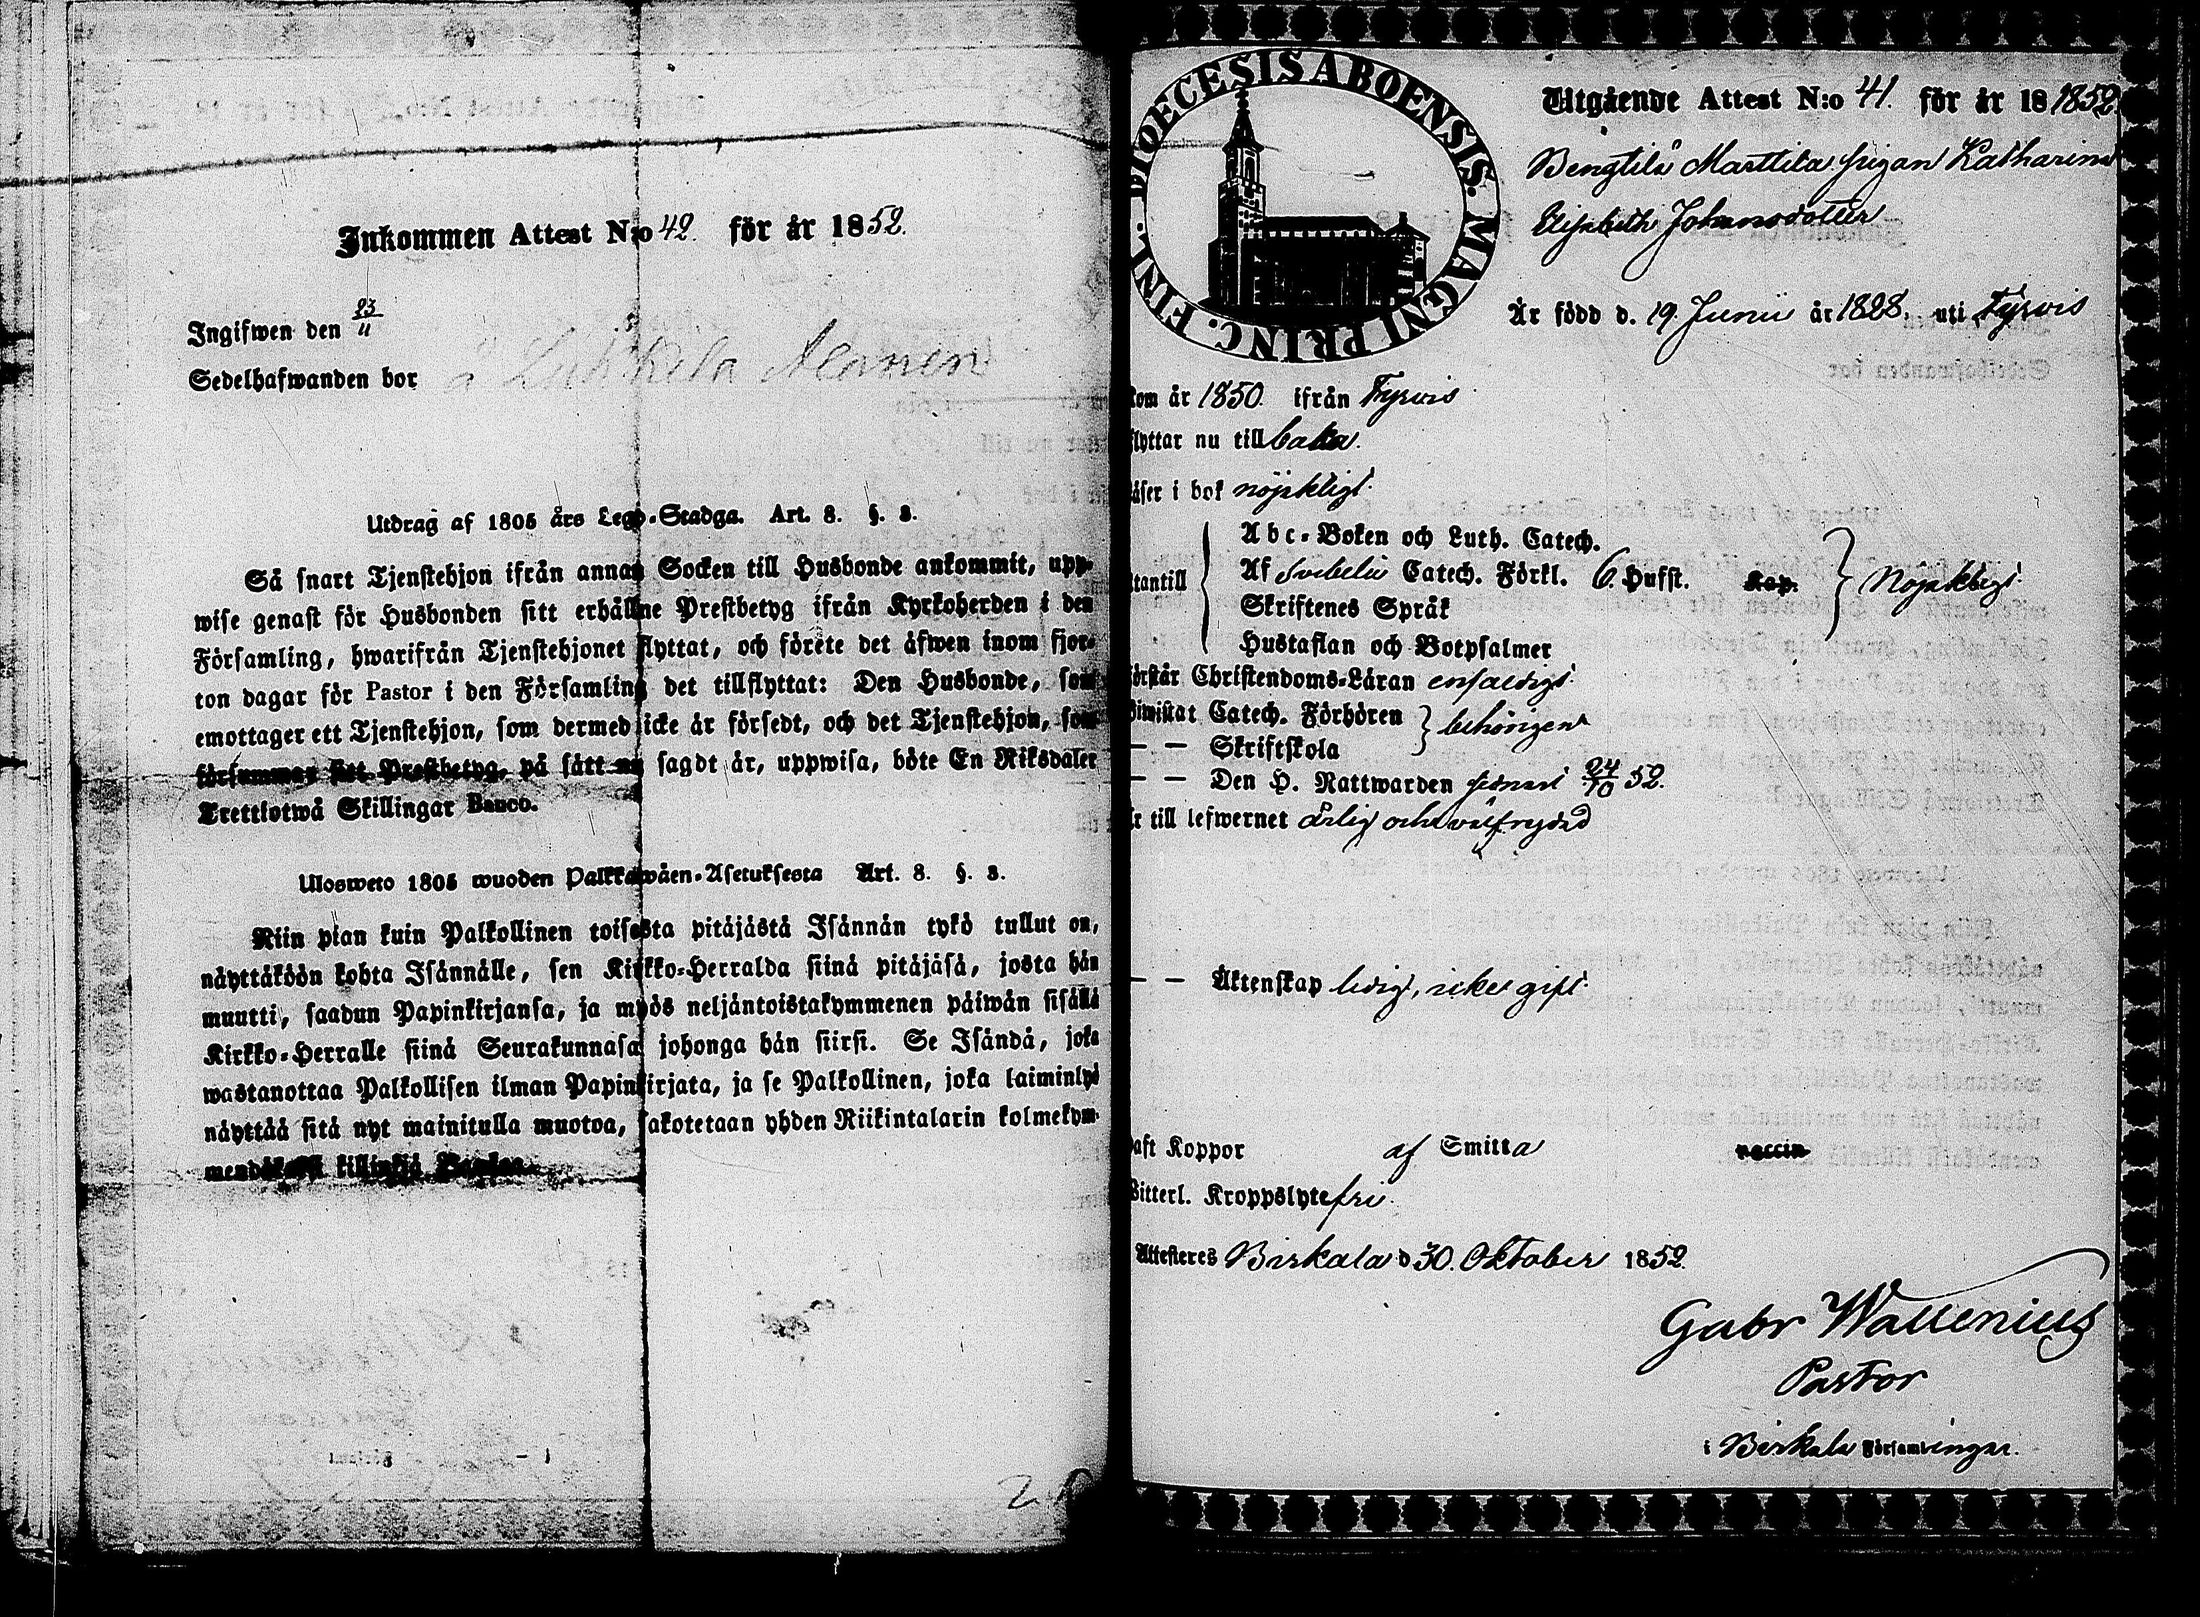 Inkommen Attest N:o 42. för år 1852.
Ingifwen den 23/11
Sedelhafwanden bor å Luk kila Alanen
Utdrag af 1805 års Lego-Stadga. Art. 8. §. 8.
Så snart Tjenstehjon ifrån annan Socken till Husbonde ankommit, upp-
wise genast för Husbonden sitt erhållne Prestbetyg ifrån Kyrkoherden i den
Församling, hwarifrån Tjenstehjonet flyttat, och förete det åfwen inom fjor-
ton dagar för Pastor i den Församling det tillflyttat: Den Husbonde, som
emottager ett Tjenstehjon, som dermed icke är försedt, och det Tjenstehjon, som
försummar sitt Prestbetyg, på sätt nu sagdt är, uppwisa, böte En Riksdaler
Trettiotwå Skillingar Banco.
Ulosweto 1805 wuoden Palkkawäen-Asetuksesta Art. 8. §. 8.
Niin pian kuin Palkollinen toisesta pitäjästä Isännän tykö tullut on,
näyttäköön kohta Isännälle, sen Kirkko-Herralda siinä pitäjäsä, josta hän
muutti, saadun Papinkirjansa, ja myös neljäntoistakymmenen päiwän sisällä
Kirkko-Herralle siinä Seurakunnasa johonga hän siirsi. Se Isändä, joka
wastanottaa Palkollisen ilman Papinkirjata, ja se Palkollinen, joka laiminlyö
näyttää sitä nyt mainitulla muotoa, sakotetaan yhden Riikintalarin kolmekym-
mendäkaksi killinkiä Bankos.
DIOECESIS ABOENSIS. MAGNI PRINC. FINL.
Utgående Attest N:o 41. för år 18 1852
Bengtilä Marttila pigan Katharina
Elisabeth Johansdotter
Är född d. 19. Junii år 1828. uti Tyrvis
kom år 1850. ifrån Tyrvis
flyttar nu till baka.
läser i bok nöjaktligt.
Abc-Boken och Luth. Catech.
utantill Af Svebelii Catech. Förkl. 6. Hufst. Kap. Nöjaktligt.
Skriftenes Språk
Hustaflan och Botpsalmer
förstår Christendoms-Läran enfaldigt.
bimistat Catech. Förhören behörigen
— — Skriftskola
— — Den H. Nattwarden senast 24/10 52.
är till lefwernet ärlig och välfrejdad
— — Äktenskap ledigt, icke gift.
haft Koppor af Smitta vaccin
Witterl. Kroppslyte fri.
Attesteres Birkala d 30. Oktober 1852.
Gabr Wallenius
Pastor
i Birkala Församlingar.